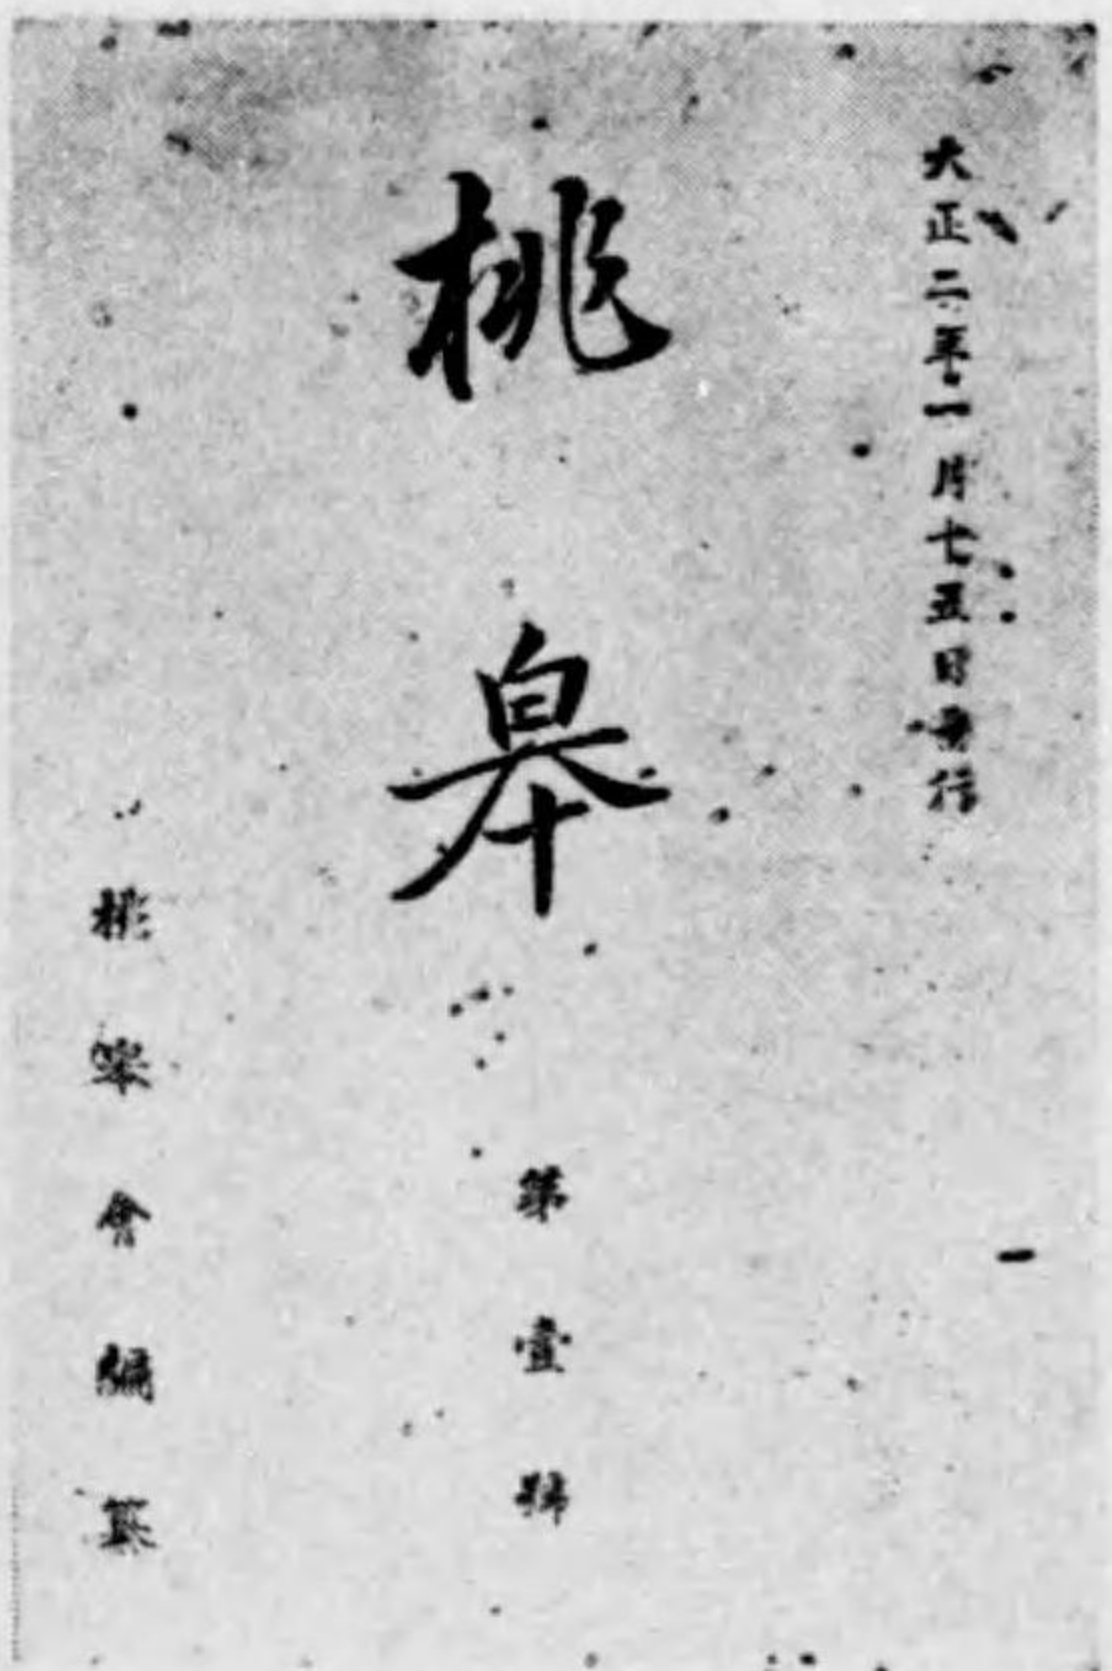 大正二年一月廿五日発行
桃皐
第壹號
桃皐會編纂